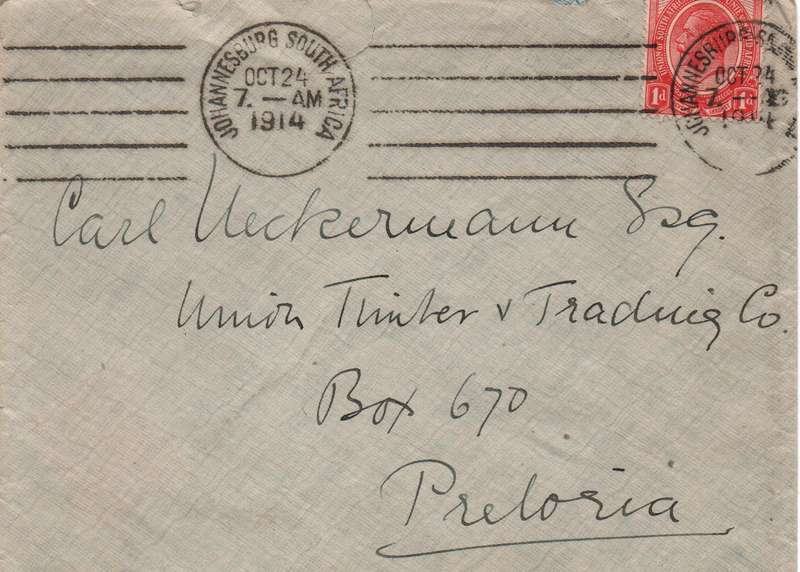 JOHANNESBURG SOUTH AFRICA
OCT 24
7. — AM
1914
UNION OF SOUTH AFRICA
1d 1d
JOHANNESBURG
OCT 24
7. —
1914
Carl Ueckermann Esq.
Union Timber & Trading Co.
Box 670
Pretoria